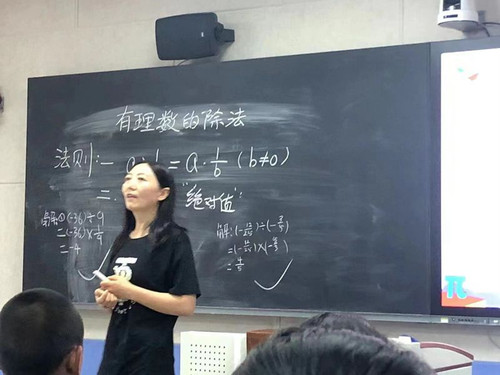 有理数的除法
法则:一 a÷b = a·1/b (b≠0)
二 "绝对值":
解:①(-36)÷9
=(-36)×1/9
=-4
解:(-12/25)÷(-3/5)
=(-12/25)×(-5/3)
=4/5
π